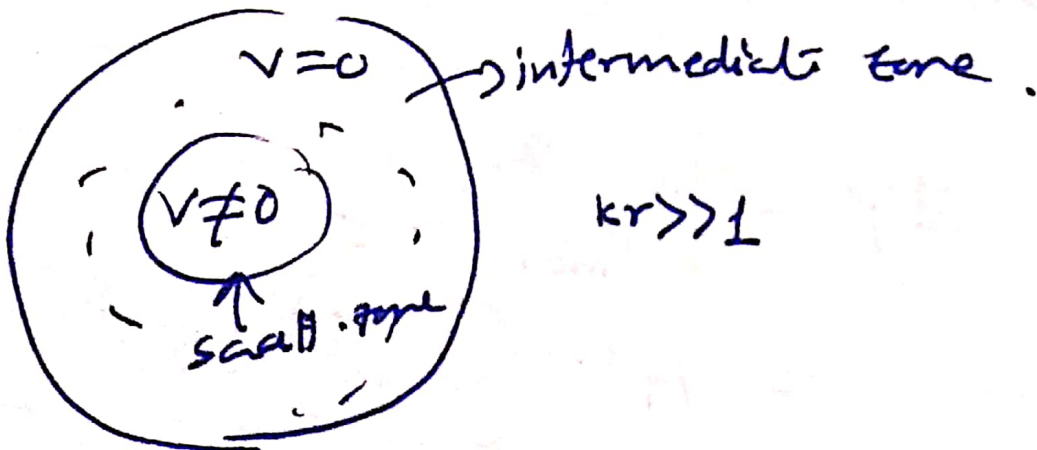 V=0
→ intermediate zone.
V≠0
kr>>1
scatt. zone